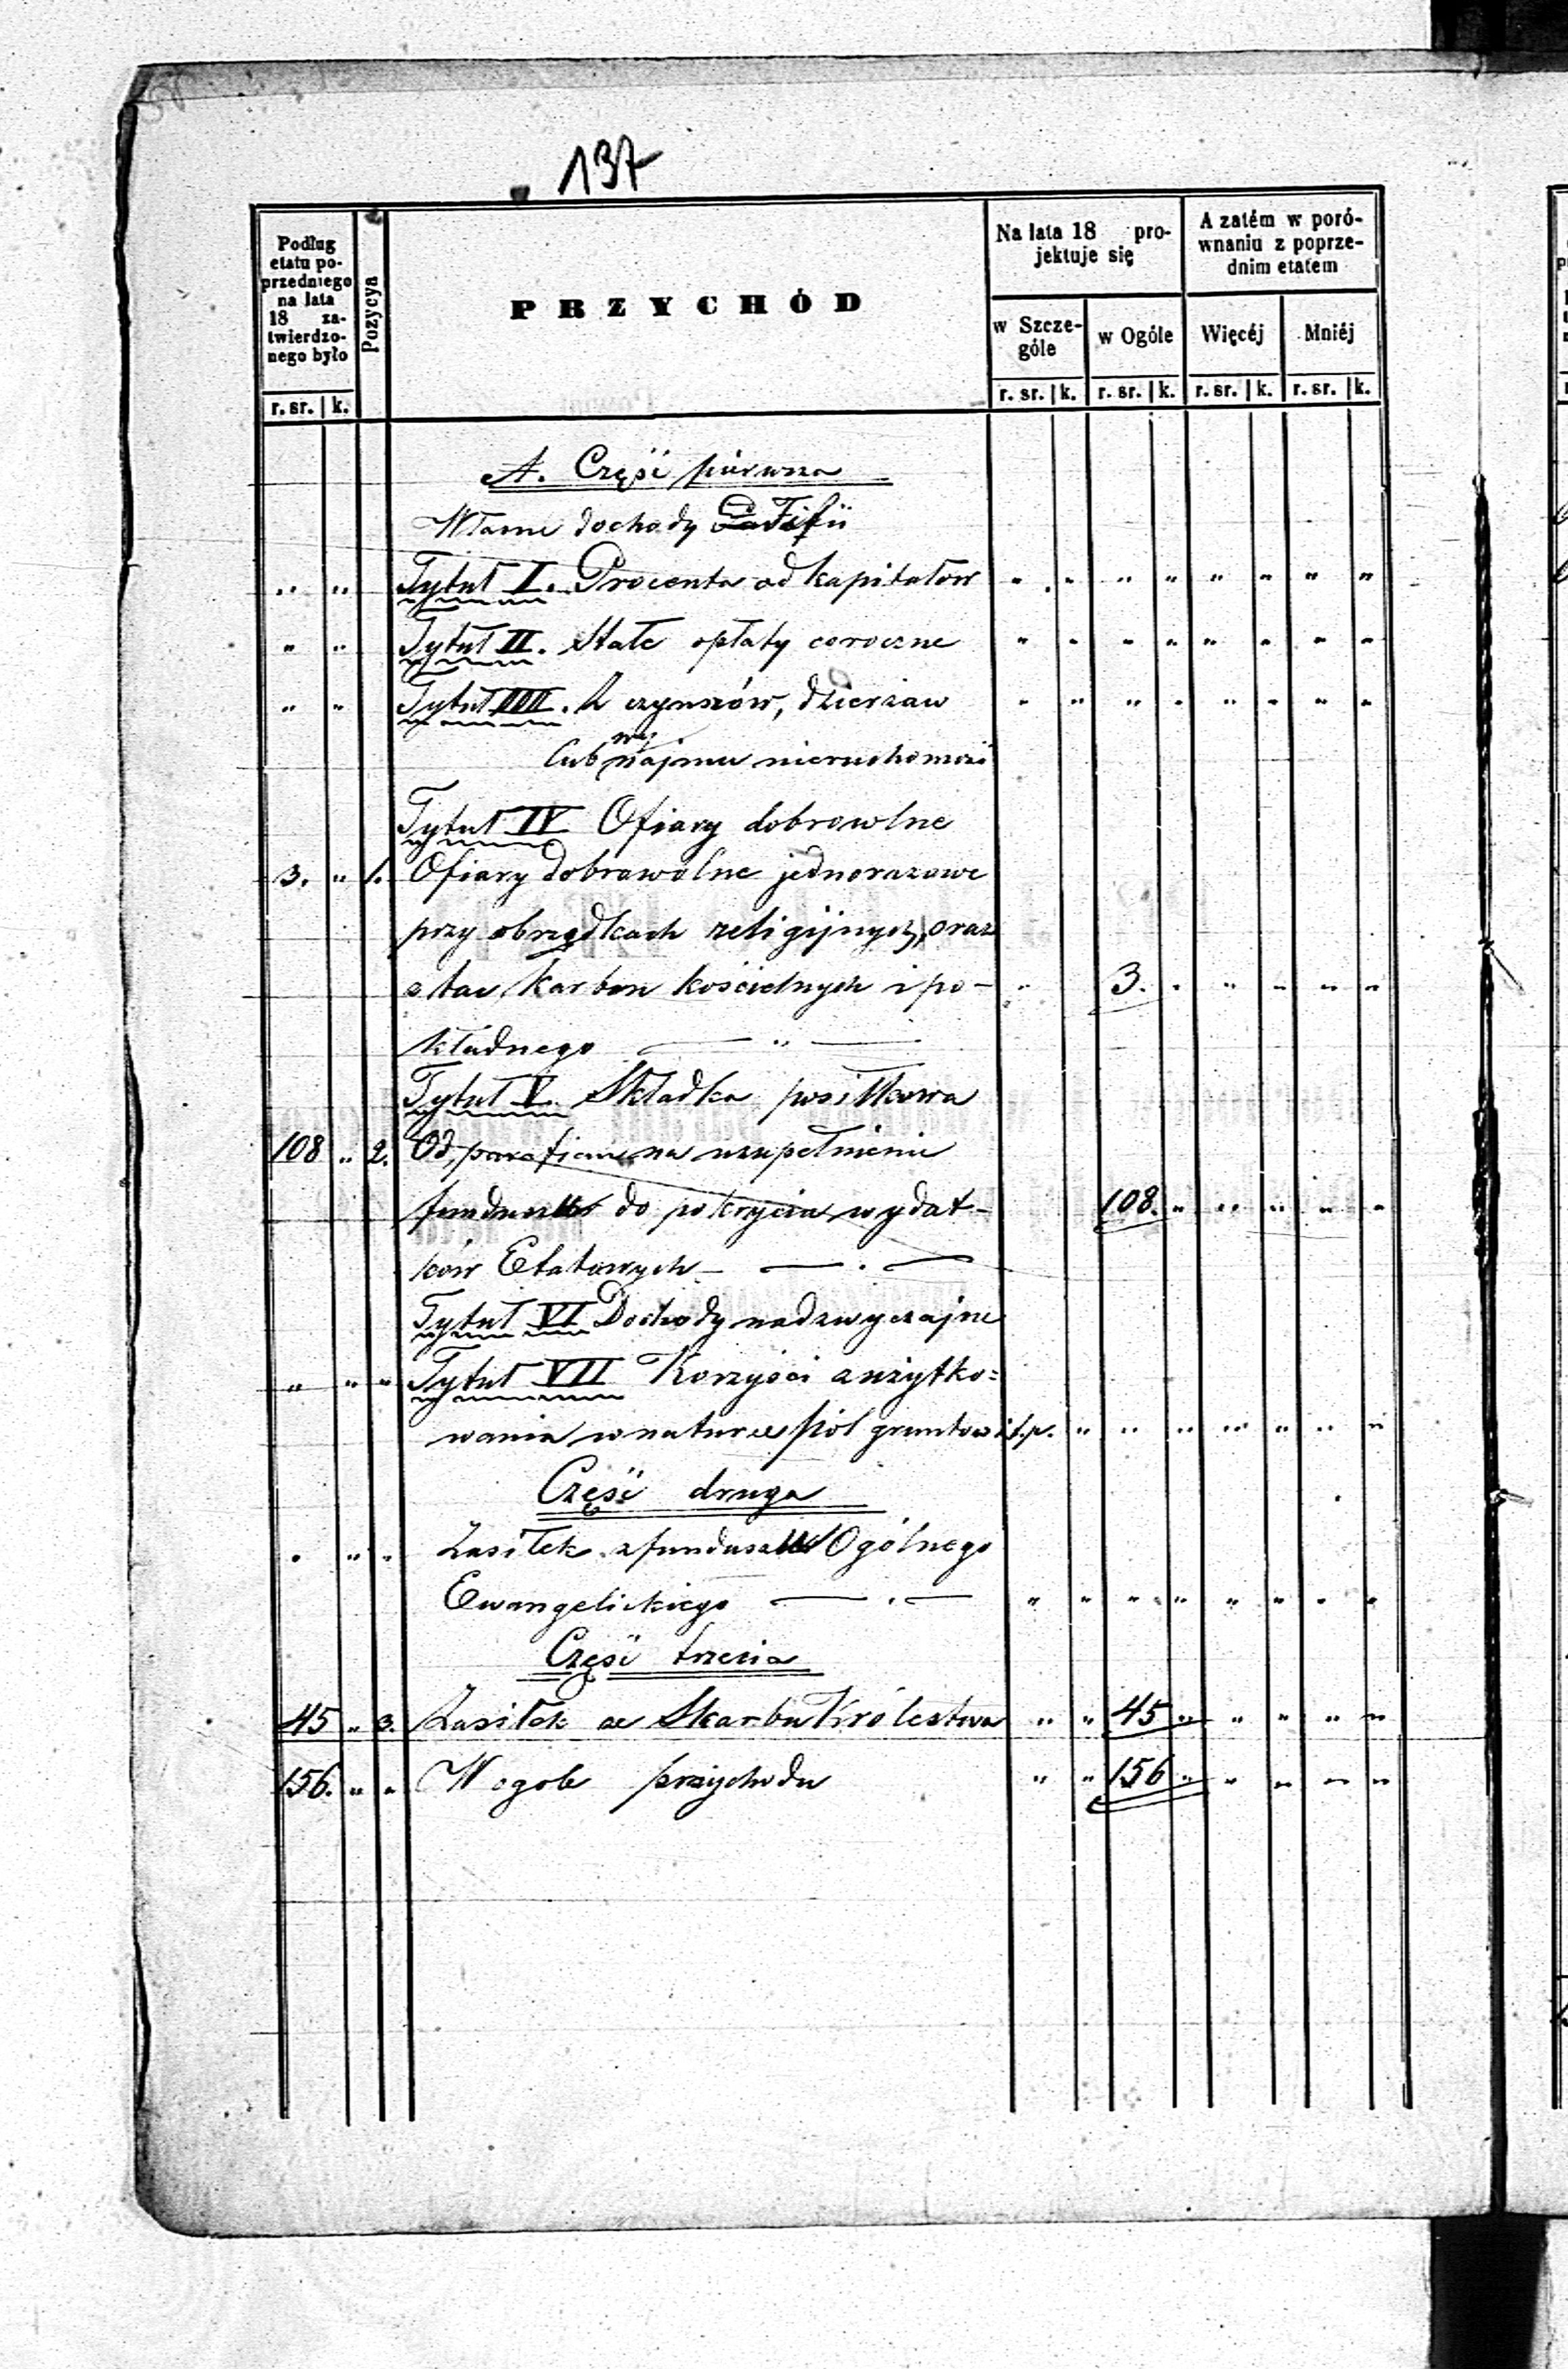 137
Podług etatu poprzedniego na lata 18 zatwierdzonego było
Pozycya
PRZYCHÓD
Na lata 18 projektuje się
A zatém w porównaniu z poprzednim etatem
w Szczególe
w Ogóle
Więcéj
Mniéj
r. sr. | k. r. sr. | k. r. sr. | k. r. sr. | k. r. sr. | k.
A. Część pierwsza
Własne dochody Filii
" " Tytuł I. Procenta od kapitałów " " " " " " " "
" " Tytuł II. Stałe opłaty coroczne " " " " " " " "
" " Tytuł III. Z czynszów, dzierżaw " " " " " " " "
lub najmu nieruchomości
Tytuł IV Ofiary dobrowolne
3. " 1. Ofiary dobrowolne jednorazowe
przy obrządkach religijnych, oraz
z tac, karbon kościelnych i po- " 3. " " " " "
kładnego — " —
Tytuł V. Składka posiłkowa
108 " 2. Od parafian na uzupełnienie
funduszu do pokrycia wydat- 108. " " " " "
ków Etatowych — . —
Tytuł VI Dochody nadzwyczajne
" " " Tytuł VII Korzyści z użytko=
wania w naturze pól gruntów i t.p. " " " " " " "
Część druga
" " " Zasiłek z funduszu Ogólnego
Ewangelickiego — . — " " " " " " " "
Część trzecia
45 " 3. Zasiłek ze Skarbu Królestwa " " 45 " " " " "
156. " " W ogóle przychodu " " 156 " " " " "